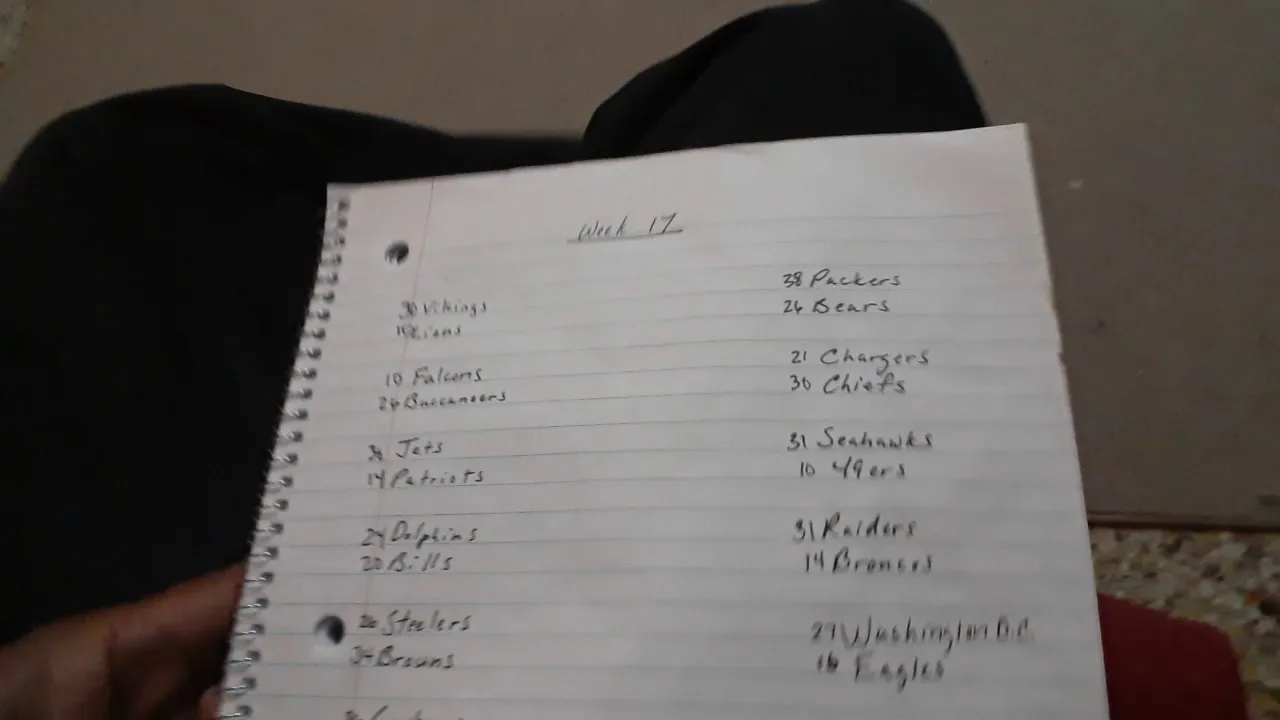 Week 17
30 Vikings
Lions
10 Falcons
26 Buccaneers
Jets
14 Patriots
24 Dolphins
20 Bills
Steelers
Browns
38 Packers
26 Bears
21 Chargers
30 Chiefs
31 Seahawks
10 49ers
31 Raiders
14 Broncos
Washington D.C.
Eagles